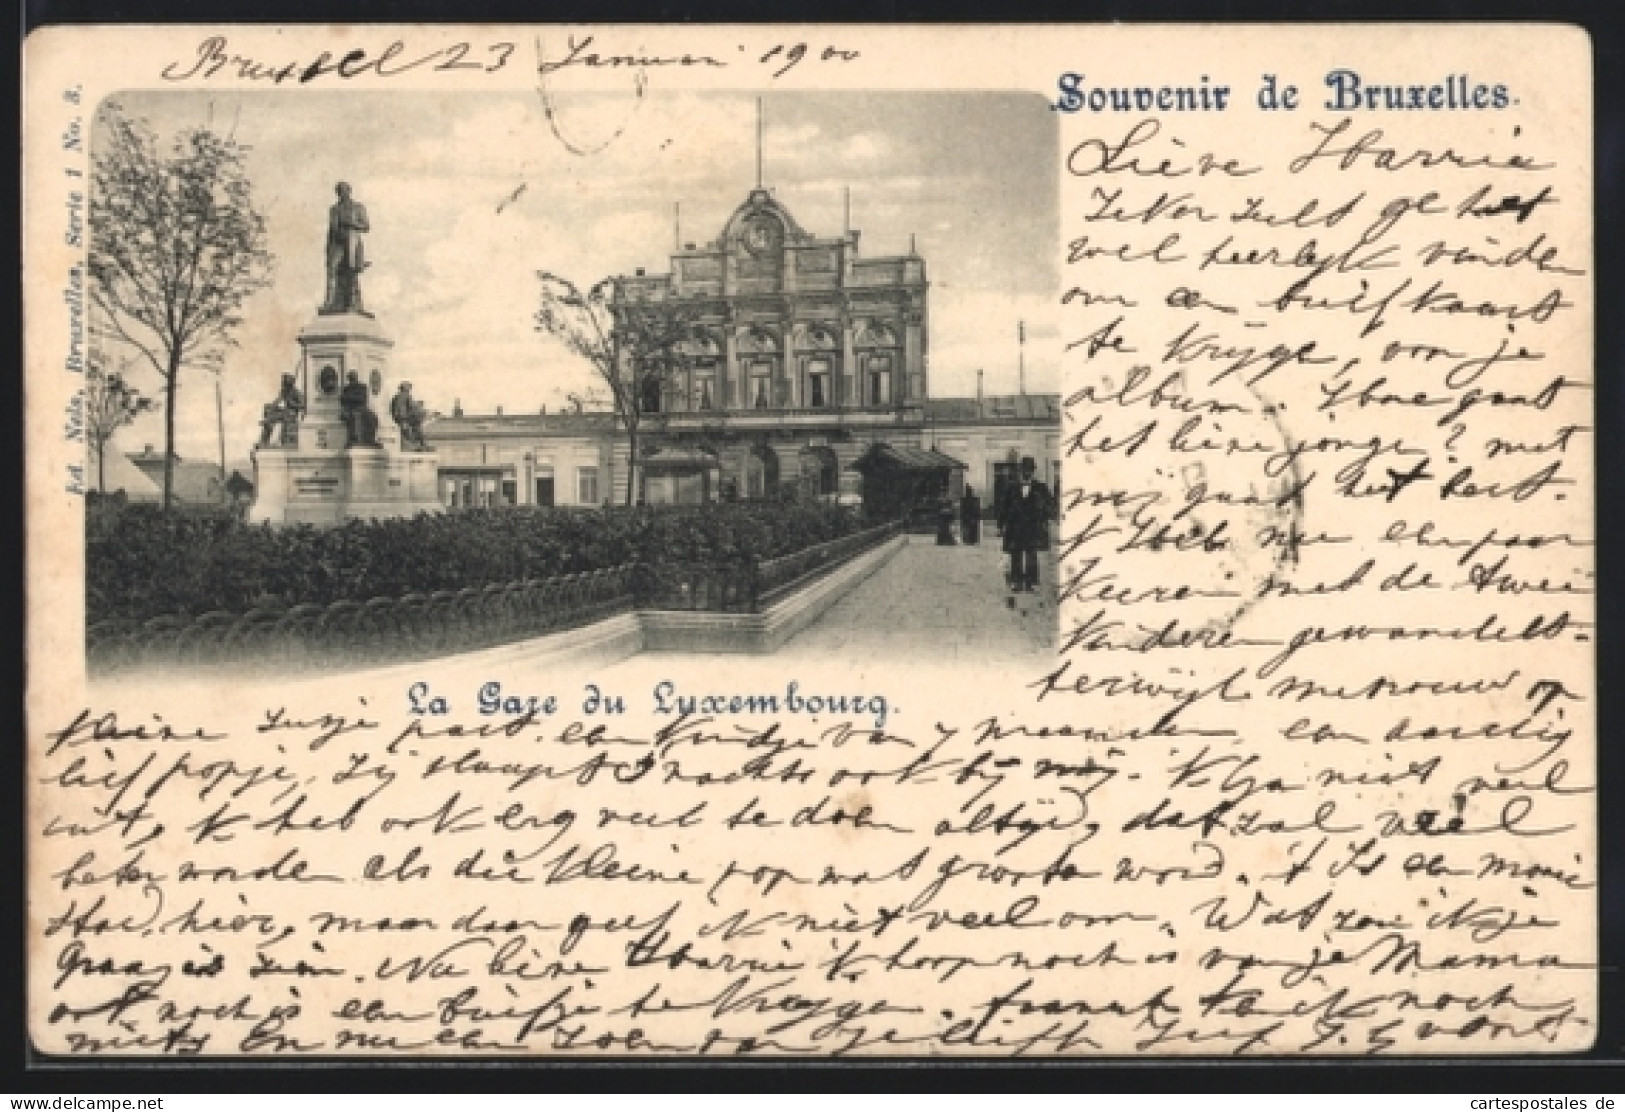 Brussel 23 Januari 1900
Souvenir de Bruxelles.
Ed. Nels, Bruxelles, Serie 1 No. 3.
Lieve
Zeker zult ge het
wel heerlijk vinden
om een briefkaart
te krijge, voor je
album. Hoe gaat
het lieve jonge? met
mij gaat het best.
k heb nu een paar
keeren met de twee
kinderen gewandelt
terwijl mevrouw op
La Gare du Luxembourg.
kleine Zusje past. een kindje van 7 maanden, een aardig
lief popje, zij slaapt S nachts ook bij mij. k Ga niet veel
uit, k heb ook erg veel te doen altijd, dat zal veel
beter worden als die kleine pop wat groote word. t Is een mooie
Stad, hier, maar daar geef ik niet veel om. Wat zou ik je
graag is zien. Nu lieve k hoop noch is van je Mama
ook noch is een briefje te krijgen. want heb ik noch
niets En nu een zoen van je liefh